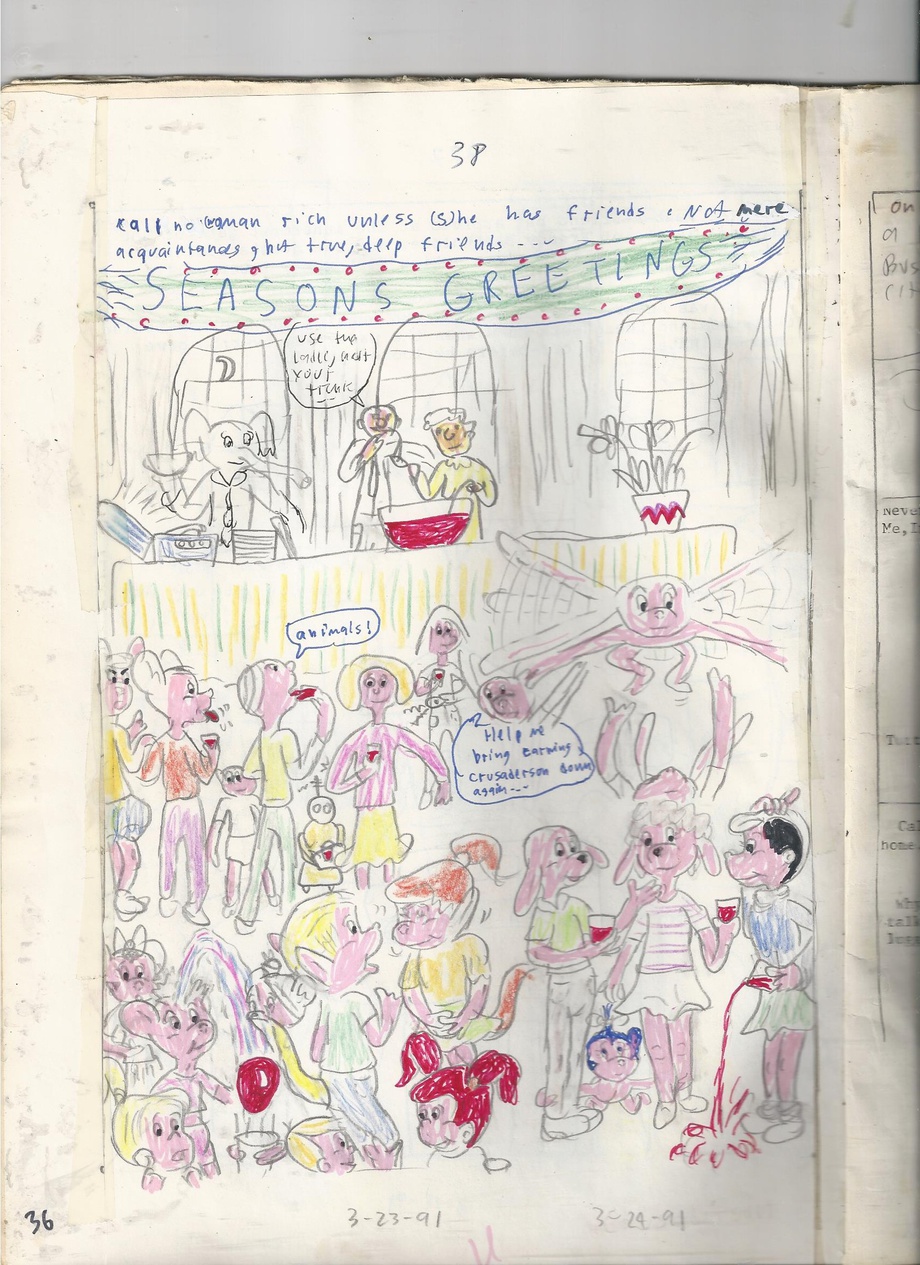 38
Call no woman rich unless (s)he has friends. Not mere
acquaintances, but true, deep friends ---
SEASONS GREETINGS
use the
ladle, not
your
trunk
animals!
Help me
bring earning
crusaderson down
again---
36
3-23-91
3-24-91
On
a
Bus
Neve
Me, I
Cal
home.
Wh